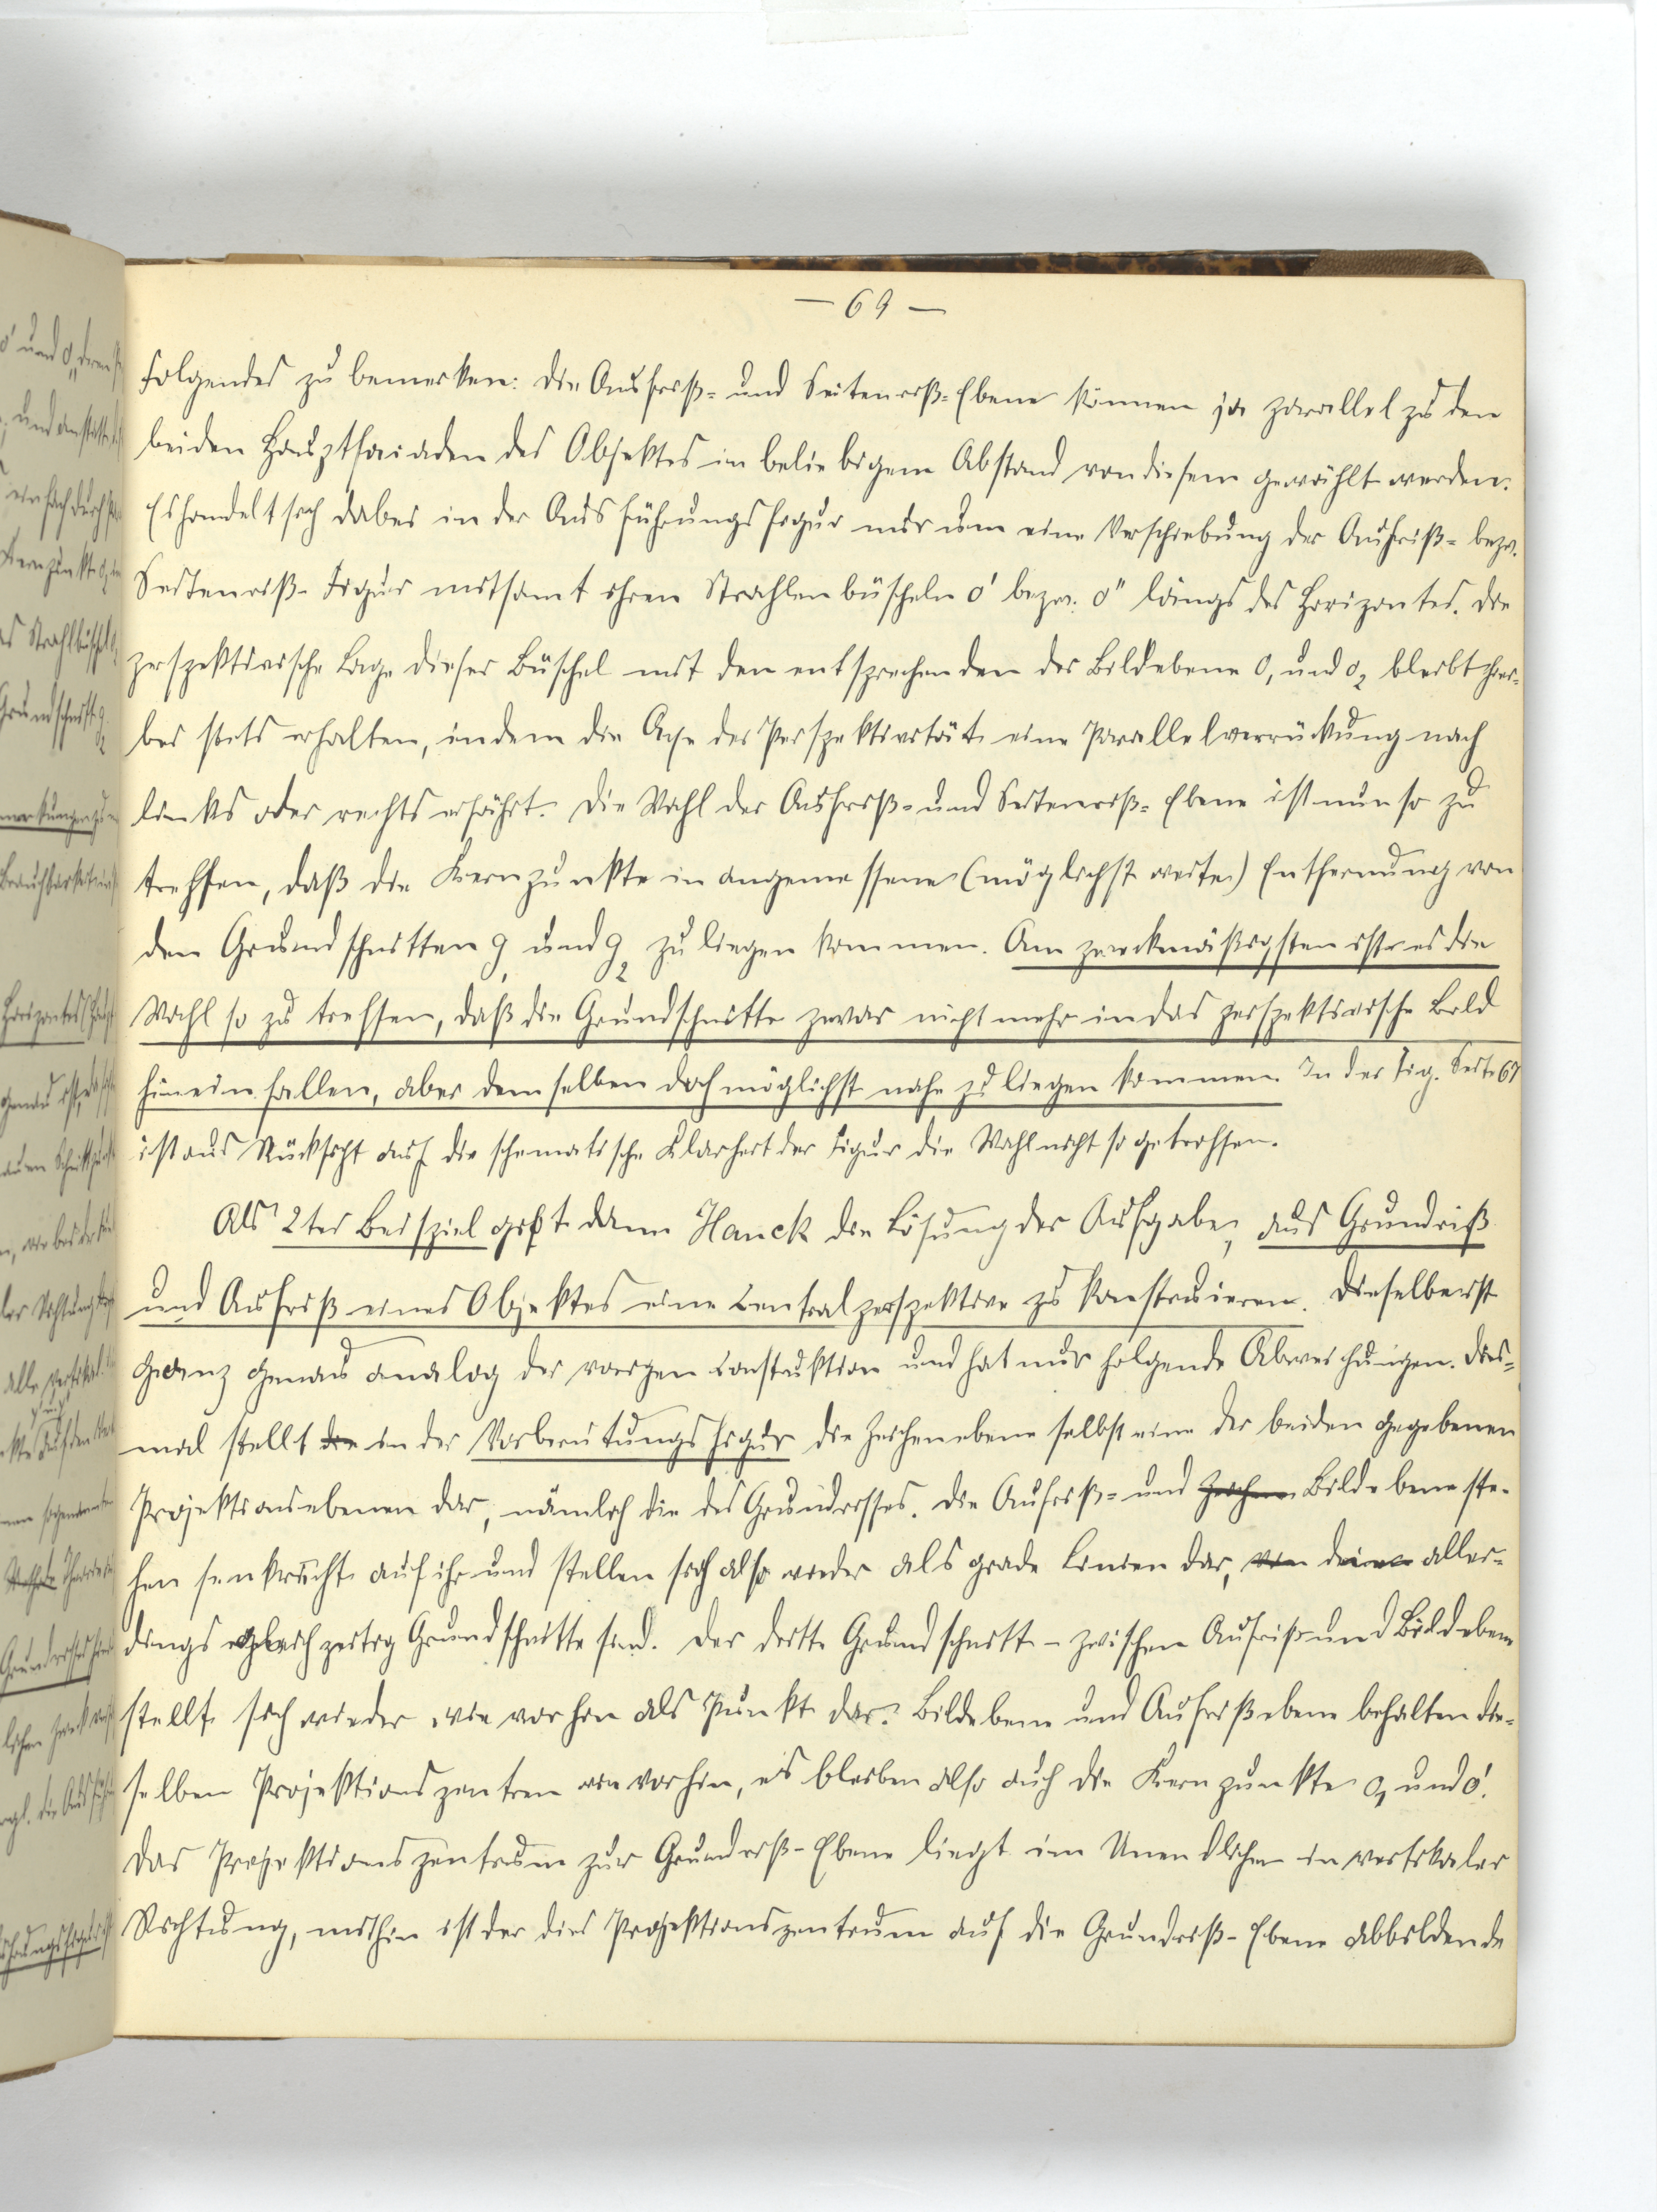 — 69 —
folgendes zu bemerken: Die Aufriß- und Seitenriß-Ebene können ja parallel zu den
beiden Hauptfaciaden des Objektes in beliebigem Abstand von diesem gewählt werden.
Es handelt sich dabei in der Ausführungsfigur nur um eine Verschiebung der Aufriß- bezw.
Seitenriß-Figur mitsamt ihren Strahlenbüscheln o' bezw. o" längs des Horizontes. Die
perspektivische Lage dieser Büschel mit den entsprechenden der Bildebene o₁ und o₂ bleibt hier-
bei stets erhalten, indem die Axe der Perspektivität eine Parallelverrückung nach
links oder rechts erfährt. Die Wahl der Aufriß- und Seitenriß-Ebene ist nun so zu
treffen, daß die Kernpunkte in angemessener (möglichst weiter) Entfernung von
den Grundschnitten g₁ und g₂ zu liegen kommen. Am zweckmäßigsten ist es die
Wahl so zu treffen, daß die Grundschnitte zwar nicht mehr in das perspektivische Bild
hineinfallen, aber demselben doch möglichst nahe zu liegen kommen. In der Fig. Seite 67
ist aus Rücksicht auf die schematische Klarheit der Figur die Wahl nicht so getroffen.
Als 2tes Beispiel gibt dann Hauck die Lösung der Aufgabe, aus Grundriß
und Aufriß eines Objektes eine Centralperspektive zu konstruieren. Dieselbe ist
ganz genau analog der vorigen Construktion und hat nur folgende Abweichungen. Dies-
mal stellt die in der Vorbereitungsfigur die Zeichenebene selbst eine der beiden gegebenen
Projektionsebenen dar, nämlich die des Grundrisses. Die Aufriß- und Zeichen Bildebene ste-
hen senkrecht auf ihr und stellen sich also wieder als grade Linien dar, die aller-
dings gleichzeitig Grundschnitte sind. Der dritte Grundschnitt – zwischen Aufriß und Bildebene
stellt sich wieder wie vorhin als Punkt dar. Bildebene und Aufrißebene behalten die-
selben Projektionszentren wie vorhin, es bleiben also auch die Kernpunkte o₁ und o'.
Das Projektionszentrum zur Grundriß-Ebene liegt im Unendlichen in vertikaler
Richtung, mithin ist der dies Projektionszentrum auf die Grundriß-Ebene abbildende